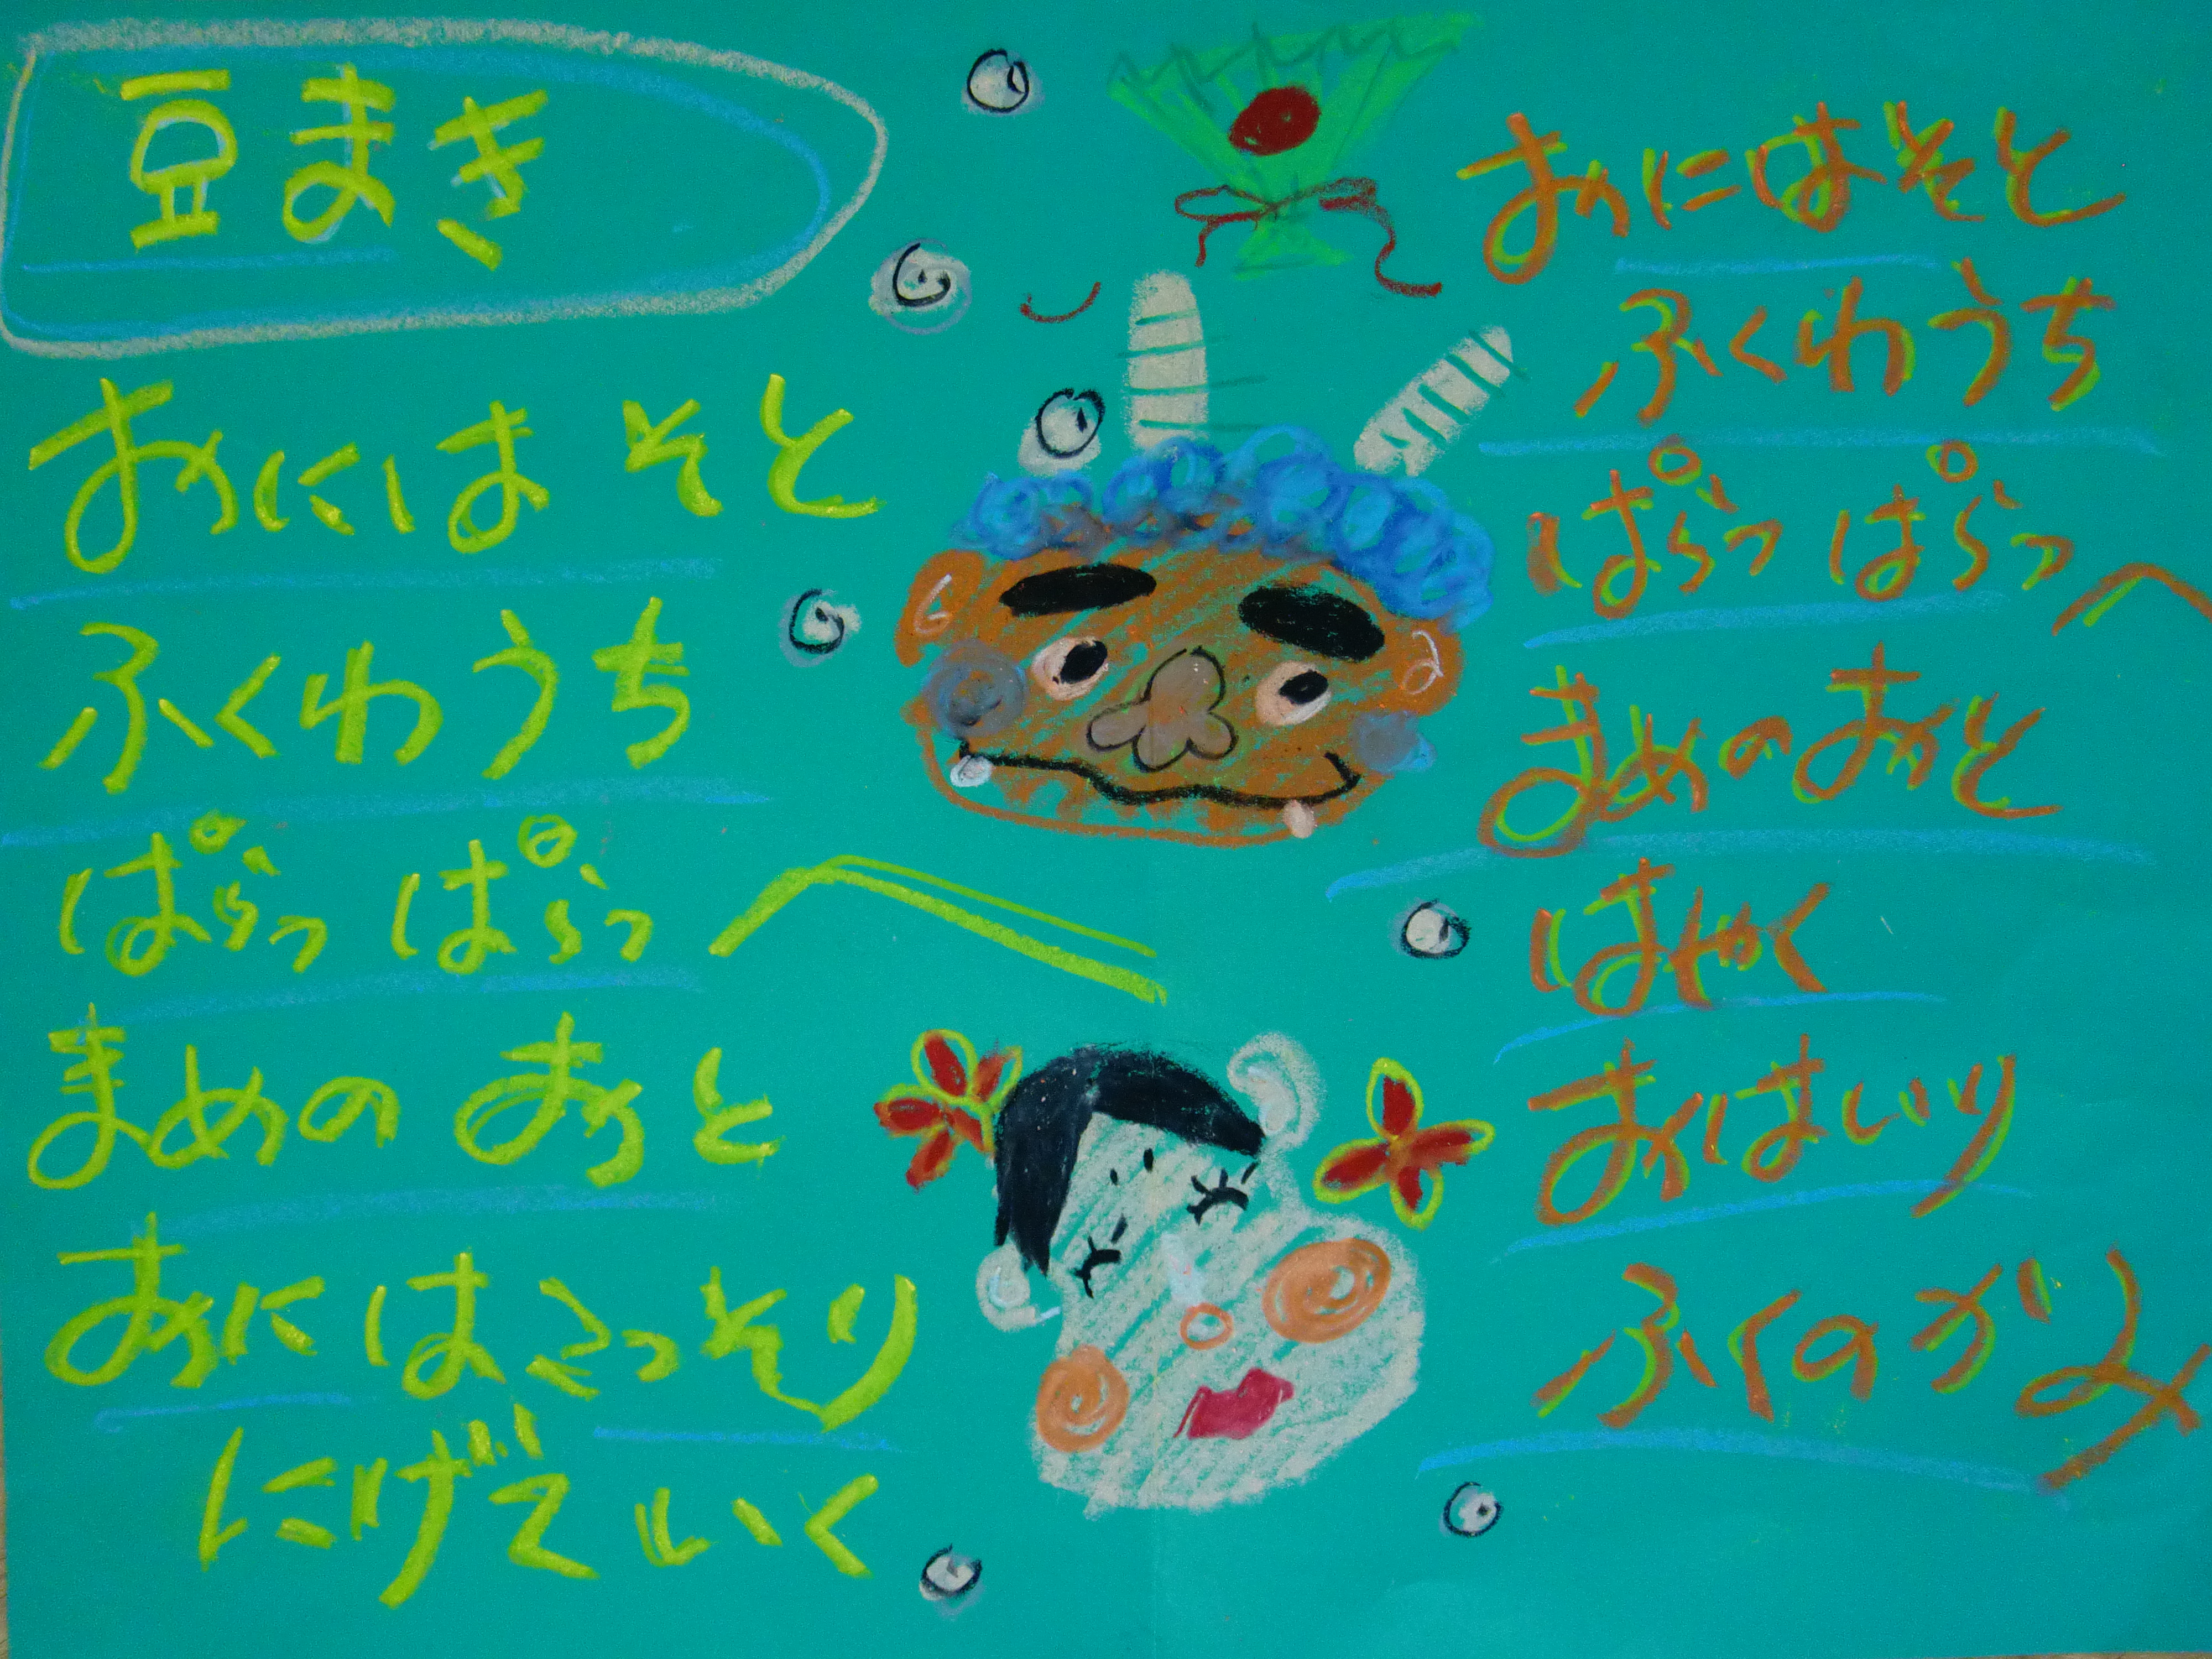 豆まき
おにはそと
ふくわうち
ぱらっ ぱらっ
まめの おと
おにはこっそり
にげていく
おにはそと
ふくわうち
ぱらっ ぱらっ
まめのおと
はやく
おはいり
ふくのかみ